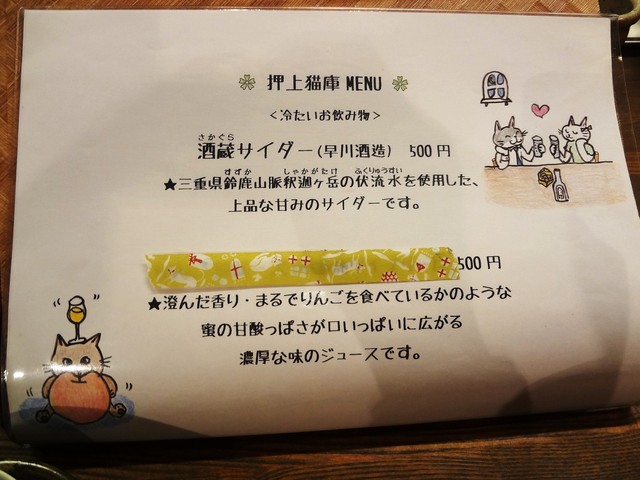 押上猫庫 MENU
<冷たいお飲み物>
さかぐら
酒蔵サイダー(早川酒造) 500円
すずか しゃかがたけ ふくりゅうすい
★三重県鈴鹿山脈釈迦ヶ岳の伏流水を使用した、
上品な甘みのサイダーです。
500円
★澄んだ香り・まるでりんごを食べているかのような
蜜の甘酸っぱさが口いっぱいに広がる
濃厚な味のジュースです。